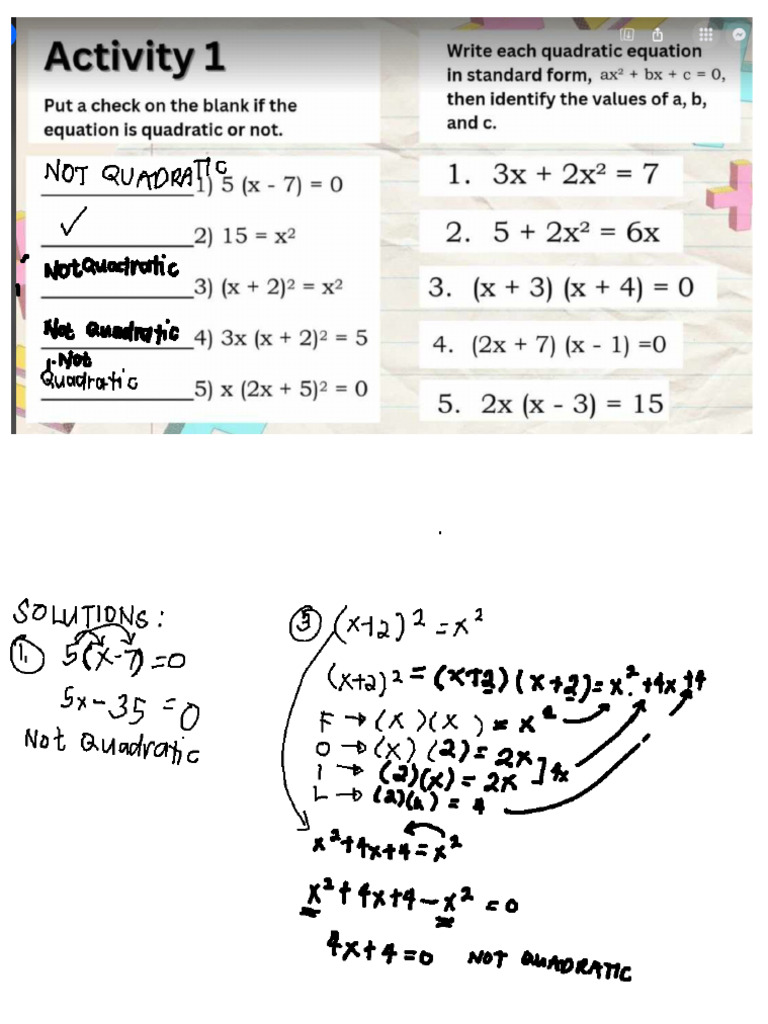 Activity 1
Put a check on the blank if the
equation is quadratic or not.
NOT QUADRATIC 1) 5 (x - 7) = 0
✓ 2) 15 = x²
Not Quadratic 3) (x + 2)² = x²
Not Quadratic 4) 3x (x + 2)² = 5
Not
Quadratic 5) x (2x + 5)² = 0
Write each quadratic equation
in standard form, ax² + bx + c = 0,
then identify the values of a, b,
and c.
1. 3x + 2x² = 7
2. 5 + 2x² = 6x
3. (x + 3) (x + 4) = 0
4. (2x + 7) (x - 1) =0
5. 2x (x - 3) = 15
SOLUTIONS:
1. 5(x-7)=0
5x-35=0
Not Quadratic
3 (x+2)²=x²
(x+2)²=(x+2)(x+2)=x²+4x+4
F→(x)(x)=x²
O→(x)(2)=2x
I→(2)(x)=2x ]4x
L→(2)(2)=4
x²+4x+4=x²
x²+4x+4-x²=0
4x+4=0 NOT QUADRATIC